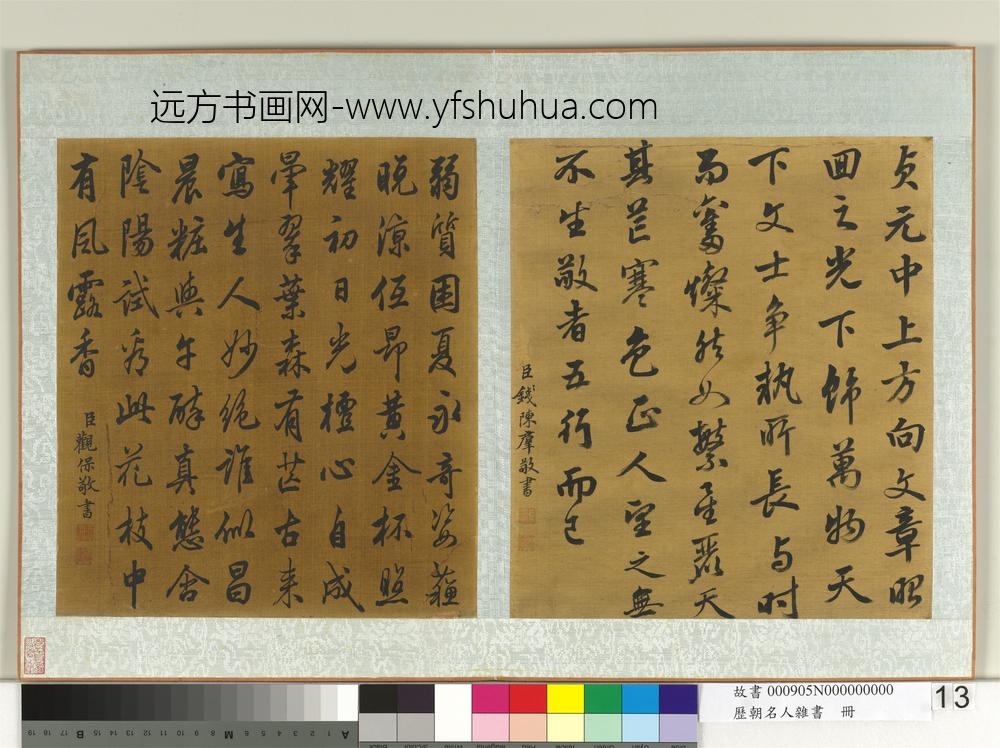 远方书画网-www.yfshuhua.com
贞元中上方向文章昭
回之光下飾萬物天
下文士争執所長与时
而奮燦然如繁星麗天
其芒寒色正人望之無
不生敬者五行而已
臣錢陳羣敬書
弱質困夏永奇姿蘓
晚涼低昂黄金杯照
耀初日光檀心自成
暈翠葉森有芒古来
寫生人妙絶誰似昌
晨粧與午醉真態含
陰陽試看此花枝中
有風露香
臣觀保敬書
故書 000905N000000000
歷朝名人雜書 冊
13